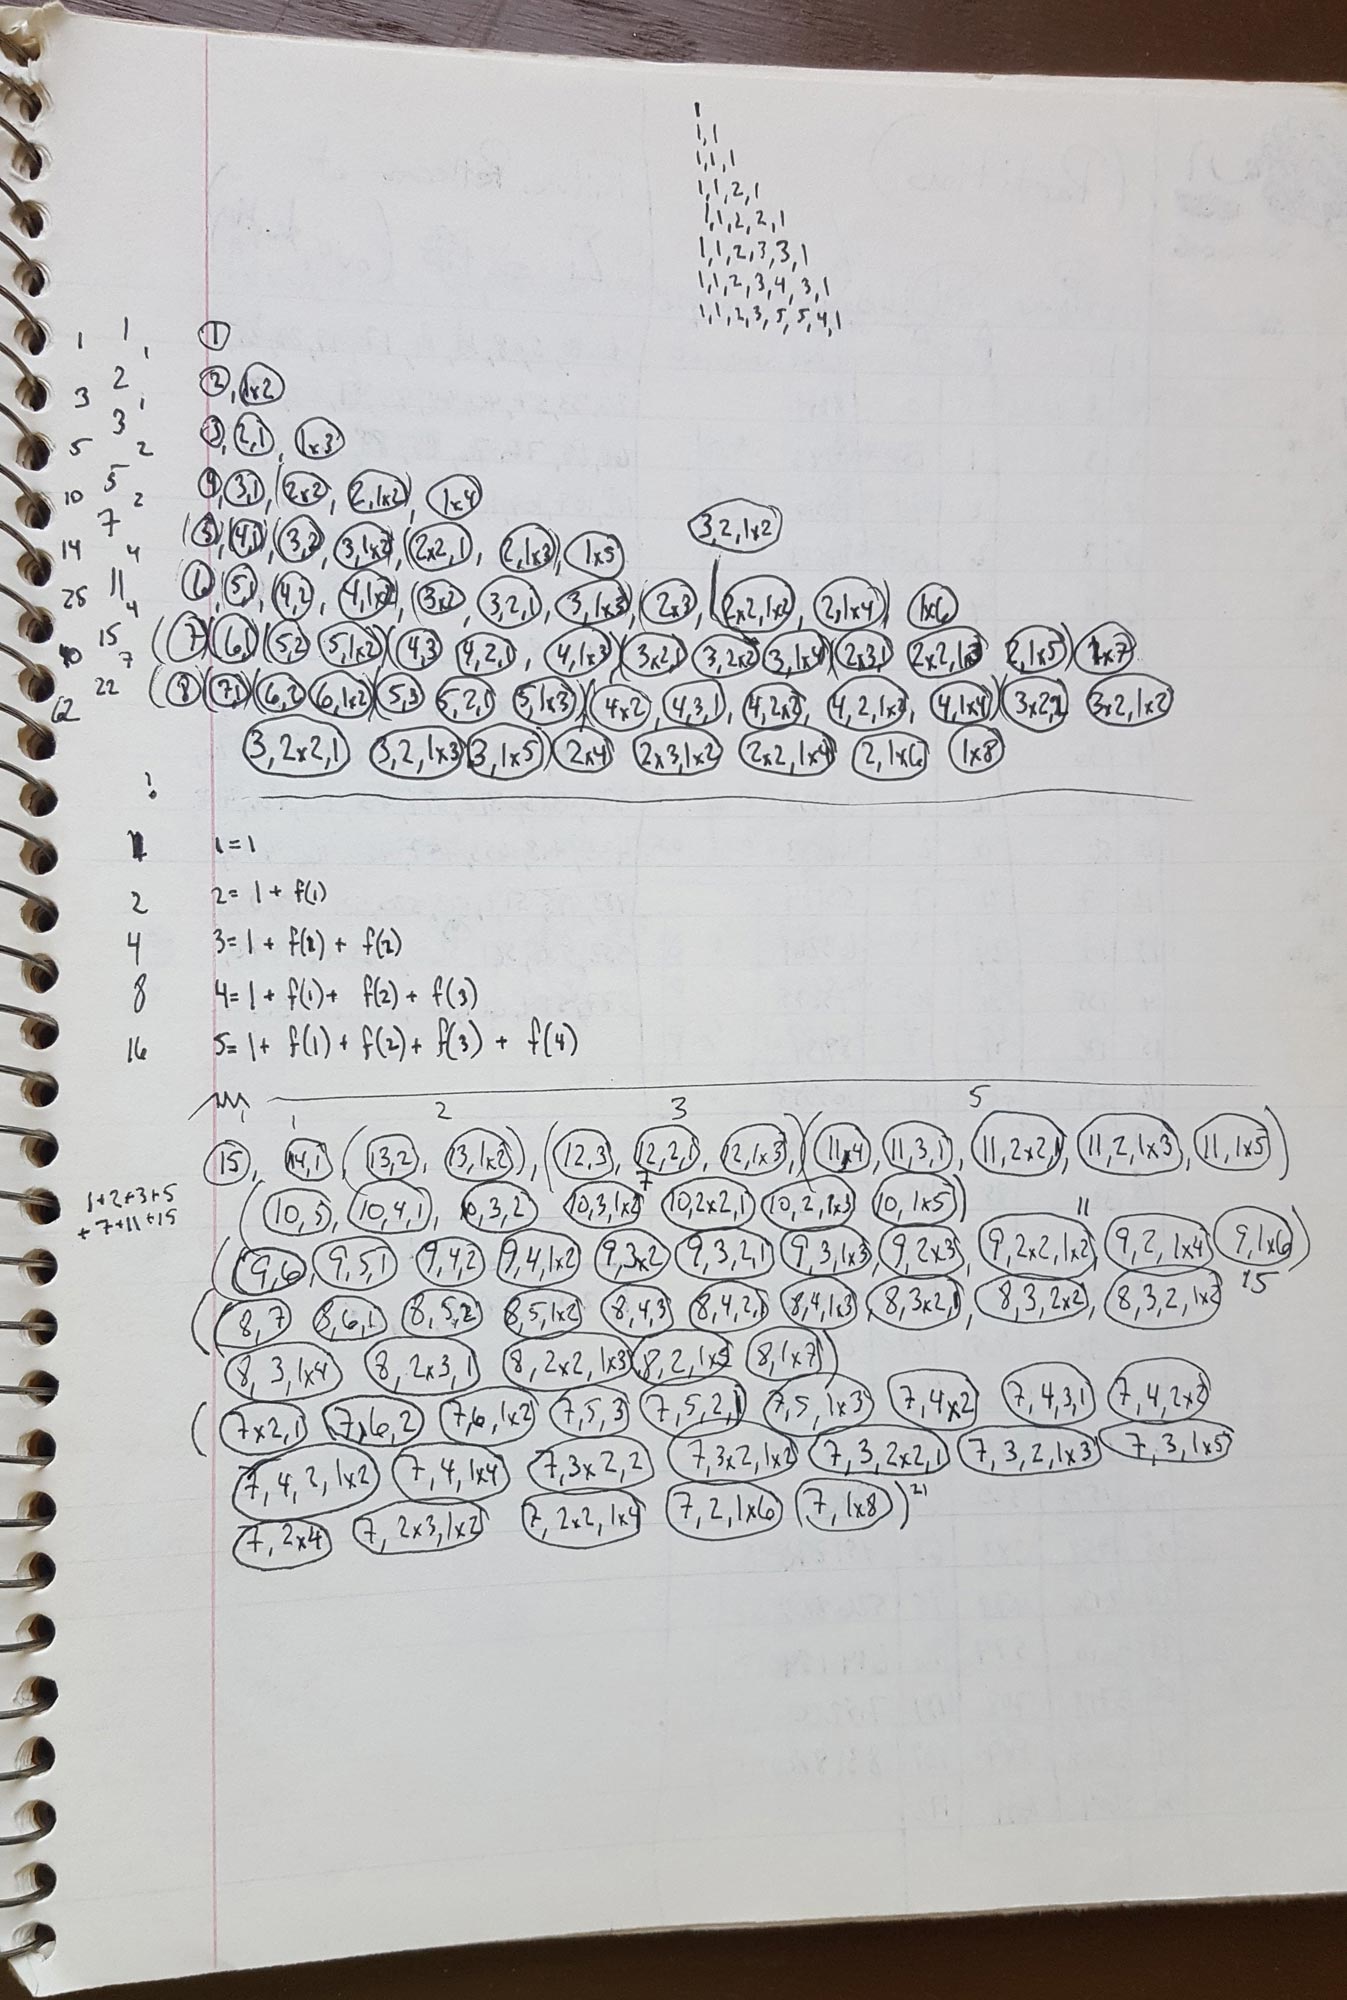 1
1,1
1,1,1
1,1,2,1
1,1,2,2,1
1,1,2,3,3,1
1,1,2,3,4,3,1
1,1,2,3,5,5,4,1
1 1 1 1
3 2 1 2, 1x2
5 3 2 3, 2,1, 1x3
10 5 2 4, 3,1, (2x2, 2,1x2), 1x4
14 7 4 (5)(4,1)(3,2, 3,1x2)(2x2,1, 2,1x3) 1x5
3,2,1x2
25 11 4 6, (5,1)(4,2, 4,1x2)(3x2, 3,2,1, 3,1x3)(2x3, 2x2,1x2, 2,1x4) 1x6
40 15 7 (7)(6,1)(5,2 5,1x2)(4,3 4,2,1, 4,1x3)(3x2,1 3,2x2 3,1x4)(2x3,1 2x2,1x3 2,1x5)(1x7
62 22 (8)(7,1)(6,2 6,1x2)(5,3 5,2,1 5,1x3)(4x2, 4,3,1, 4,2x2, 4,2,1x2, 4,1x4)(3x2,2 3x2,1x2
3,2x2,1 3,2,1x3 3,1x5)(2x4 2x3,1x2 2x2,1x4 2,1x6 1x8
1 1=1
2 2= 1 + f(1)
4 3= 1 + f(1) + f(2)
8 4= 1 + f(1) + f(2) + f(3)
16 5= 1 + f(1) + f(2) + f(3) + f(4)
1 2 3 5
15, 14,1 (13,2, 13,1x2), (12,3, 12,2,1, 12,1x3,)(11x4, 11,3,1, 11,2x2,1, 11,2,1x3, 11,1x5)
1+2+3+5
+7+11+15
7 11
(10,5, 10,4,1, 10,3,2 10,3,1x2 10,2x2,1 10,2,1x3 10,1x5)
(9,6, 9,5,1 9,4,2 9,4,1x2 9,3x2 9,3,2,1 9,3,1x3, 9,2x3, 9,2x2,1x2, 9,2,1x4 9,1x6)
15
(8,7 8,6,1 8,5,2 8,5,1x2 8,4,3 8,4,2,1 8,4,1x3, 8,3x2,1 8,3,2x2, 8,3,2,1x2
8,3,1x4 8,2x3,1 8,2x2,1x3 8,2,1x5 8,1x7)
(7x2,1 7,6,2 7,6,1x2 7,5,3 7,5,2,1 7,5,1x3 7,4x2 7,4,3,1 7,4,2x2
7,4,2,1x2 7,4,1x4 7,3x2,2 7,3x2,1x2 7,3,2x2,1 7,3,2,1x3 7,3,1x5
7,2x4 7,2x3,1x2 7,2x2,1x4 7,2,1x6 7,1x8) 21